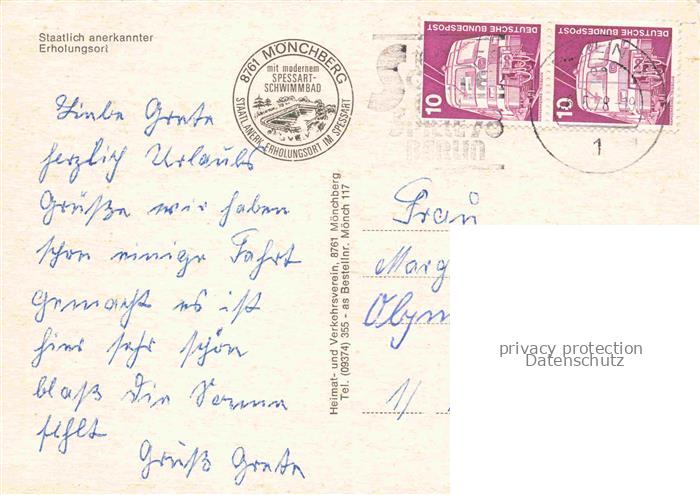 Staatlich anerkannter
Erholungsort
8761 MÖNCHBERG
mit modernem
SPESSART-
SCHWIMMBAD
STAATL. ANERK. ERHOLUNGSORT IM SPESSART
DEUTSCHE BUNDESPOST
10
DEUTSCHE BUNDESPOST
10
BERLIN
1
Liebe Grete
herzlich Urlaubs
Grüße wir haben
schon einige Fahrt
gemacht es ist
hier sehr schön
blaß die Sonne
fehlt
Gruß Grete
Heimat- und Verkehrsverein, 8761 Mönchberg
Tel. (09374) 355 - as Bestellnr. Mönch 117
Frau
Marg
Olym
1/
privacy protection
Datenschutz